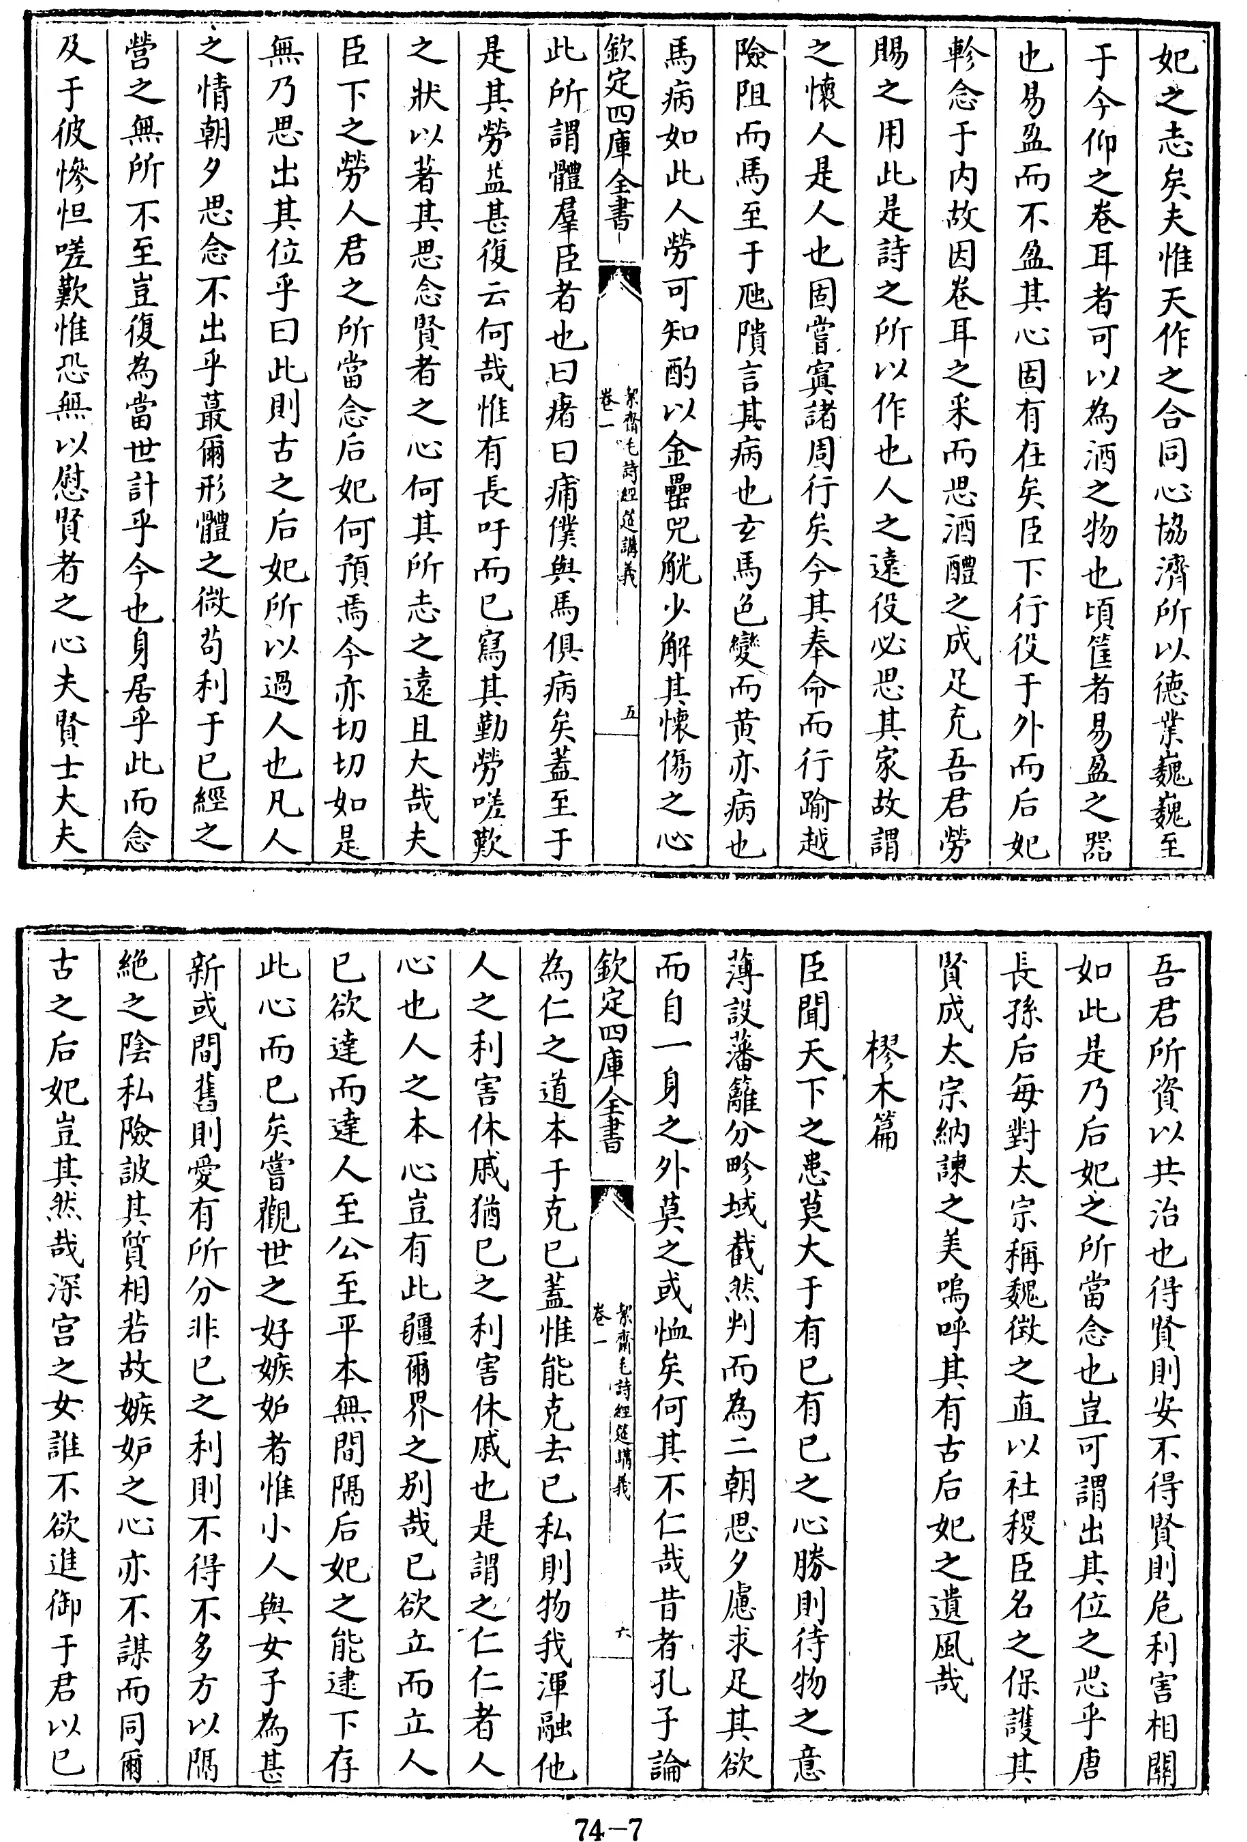 妃之志矣夫惟天作之合同心協濟所以德業巍巍至
于今仰之卷耳者可以為酒之物也頃筐者易盈之器
也易盈而不盈其心固有在矣臣下行役于外而后妃
軫念于内故因卷耳之采而思酒醴之成足充吾君勞
賜之用此是詩之所以作也人之遠役必思其家故謂
之懷人是人也固嘗寘諸周行矣今其奉命而行踰越
險阻而馬至于虺隤言其病也玄馬色變而黄亦病也
馬病如此人勞可知酌以金罍兕觥少解其懷傷之心
欽定四庫全書
絜齋毛詩經筵講義
卷一
五
此所謂體羣臣者也曰瘏曰痡僕與馬俱病矣蓋至于
是其勞益甚復云何哉惟有長吁而已寫其勤勞嗟歎
之狀以著其思念賢者之心何其所志之遠且大哉夫
臣下之勞人君之所當念后妃何預焉今亦切切如是
無乃思出其位乎曰此則古之后妃所以過人也凡人
之情朝夕思念不出乎蕞爾形體之微苟利于已經之
營之無所不至豈復為當世計乎今也身居乎此而念
及于彼慘怛嗟歎惟恐無以慰賢者之心夫賢士大夫
吾君所資以共治也得賢則安不得賢則危利害相關
如此是乃后妃之所當念也豈可謂出其位之思乎唐
長孫后每對太宗稱魏徴之直以社稷臣名之保護其
賢成太宗納諫之美嗚呼其有古后妃之遺風哉
樛木篇
臣聞天下之患莫大于有已有已之心勝則待物之意
薄設藩籬分畛域截然判而為二朝思夕慮求足其欲
而自一身之外莫之或恤矣何其不仁哉昔者孔子論
欽定四庫全書
絜齋毛詩經筵講義
卷一
六
為仁之道本于克已蓋惟能克去已私則物我渾融他
人之利害休戚猶已之利害休戚也是謂之仁仁者人
心也人之本心豈有此疆爾界之别哉已欲立而立人
已欲達而達人至公至平本無間隔后妃之能逮下存
此心而已矣嘗觀世之好嫉妬者惟小人與女子為甚
新或間舊則愛有所分非已之利則不得不多方以隔
絶之陰私險詖其質相若故嫉妒之心亦不謀而同爾
古之后妃豈其然哉深宫之女誰不欲進御于君以已
74-7